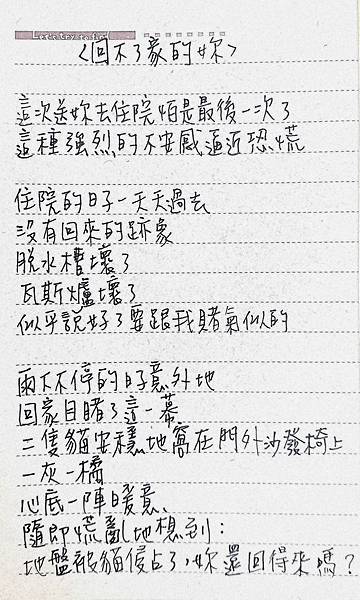 Let's try to find
<回不了家的妳>
這次送妳去住院怕是最後一次了
這種強烈的不安感逼近恐慌
住院的日子一天天過去
沒有回來的跡象
脫水槽壞了
瓦斯爐壞了
似乎說好了要跟我賭氣似的
雨下不停的日子意外地
回家目睹了這一幕
二隻貓安穩地窩在門外沙發椅上
一灰一橘
心底一陣暖意、
隨即慌亂地想到：
地盤被貓侵占了，妳還回得來嗎？